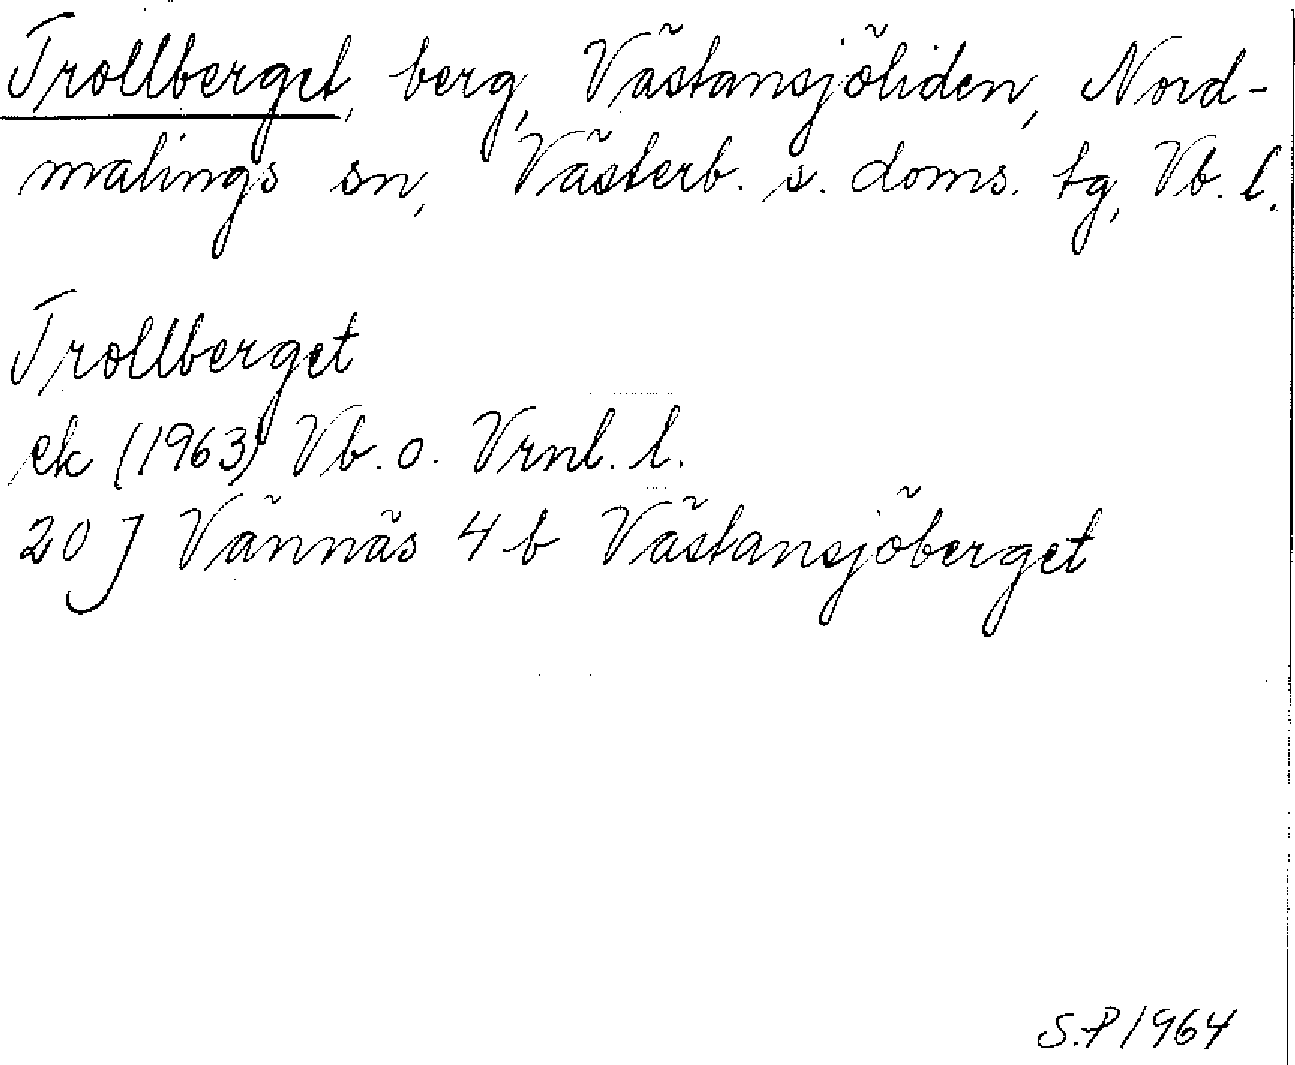 Trollberget, berg, Västansjöliden, Nord-
malings sn, Västerb. s. doms. tg, Vb. l.
Trollberget
ek (1963) Vb. o. Vrnl. l.
20 J Vännäs 4 b Västansjöberget
S.P 1964